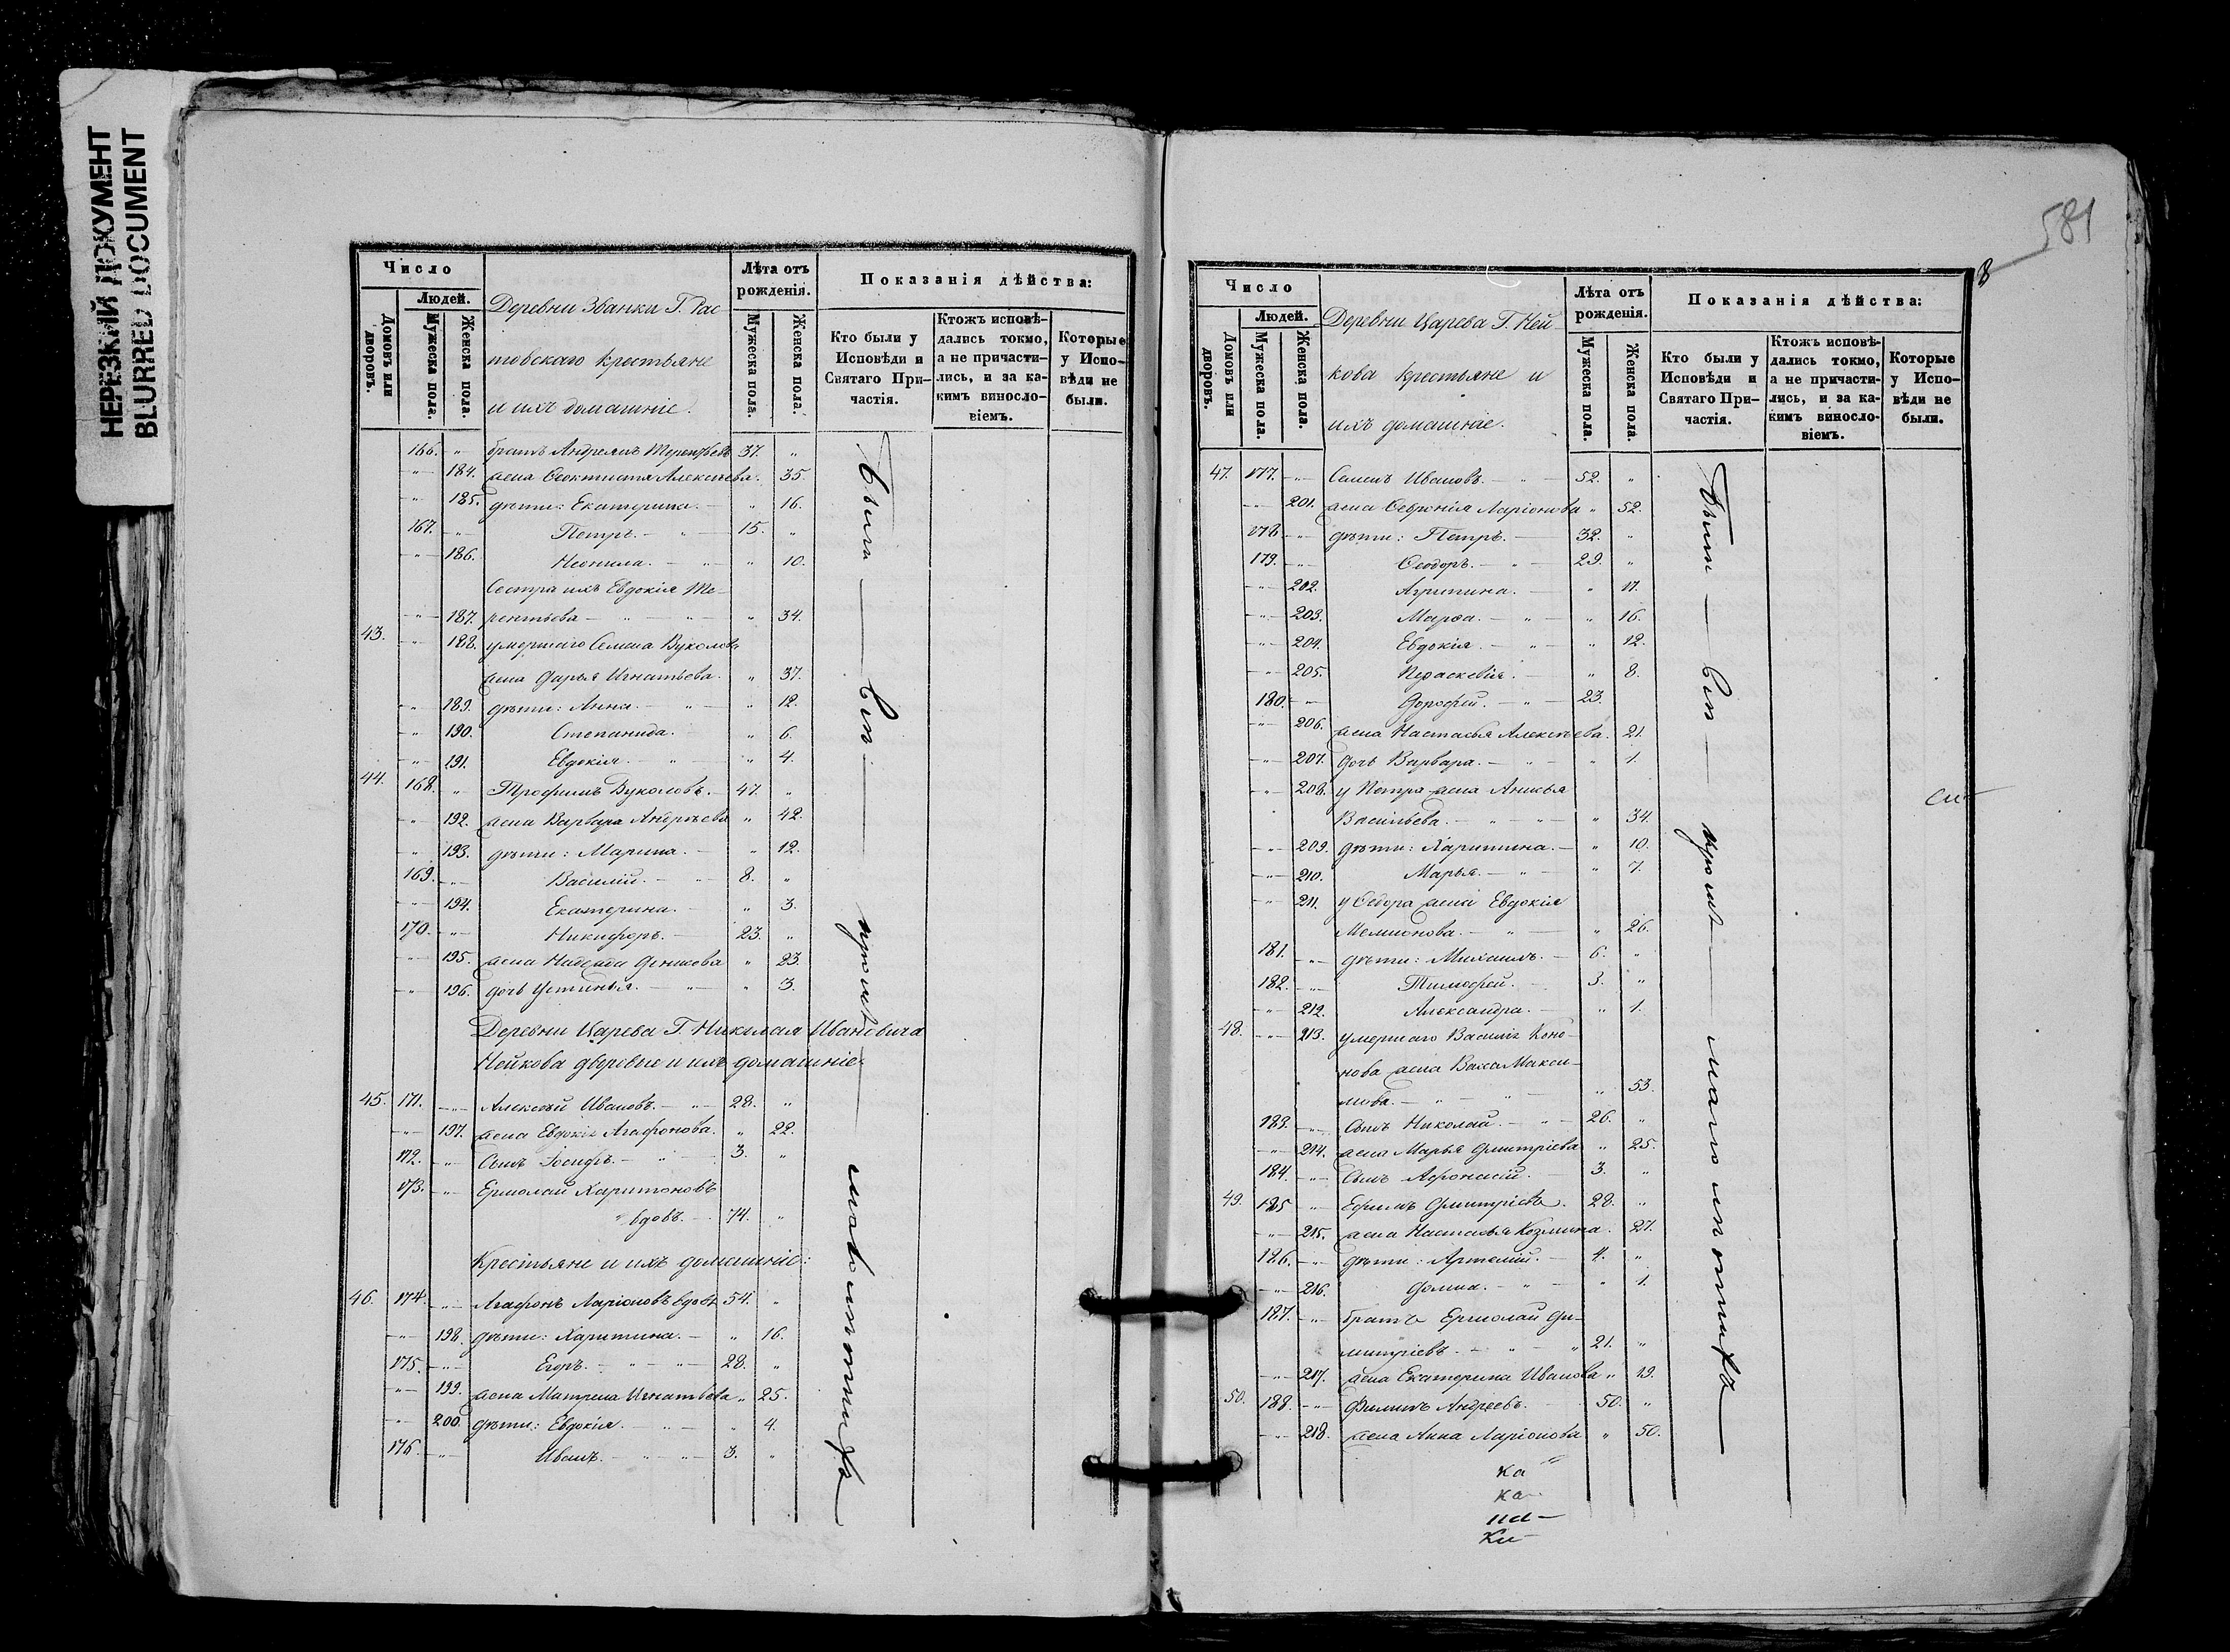 НЕРЕЗКИЙ ДОКУМЕНТ
BLURRED DOCUMENT
Число
Людей.
Домовъ или дворовъ.
Мужеска пола.
Женска пола.
Деревни Званки Г. Рас-
товскаго крестьяне
и ихъ домашніе.
Лѣта отъ рожденія.
Мужеска пола.
Женска пола.
Показанія дѣйства:
Кто были у Исповѣди и Святаго При-частія.
Ктожъ исповѣ-дались токмо, а не причасти-лись, и за ка-кимъ винословіемъ.
Которые у Испо-вѣди не были.
166. " братъ Андреянъ Терентьевъ 37. "
" 184. жена Феоктиста Алексѣева. 35.
" 185. дѣти: Екатерина. " 16.
167. " Петръ. " 15. "
" 186. Неонила. " " 10.
Сестра ихъ Евдокія Те-
" 187. рентьева " " " 34.
43. " 188. умершаго Семена Вуколова
жена Дарья Игнатьева. " 37.
" 189. дѣти: Анна. " " 12.
" 190. Степанида. " 6.
" 191. Евдокія. " " 4.
44. 168. " Трофимъ Вуколовъ. 47. "
" 192. жена Варвара Андрѣева " 42.
" 193. дѣти: Марина. " 12.
169. " Василій. " 8. "
" 194. Екатерина. " 3.
170. " Никифоръ. 23. "
" 195. жена Надежда Денисова " 23.
" 196. дочь Устинья. " " 3.
Деревни Царева Г. Николая Ивановича
Нейкова дворовые и ихъ домашніе.
45. 171. " Алексѣй Ивановъ. " 28. "
" 197. жена Евдокія Агафонова. " 22.
172. " Сынъ Іосифъ. " 3. "
173. " Ермолай Харитоновъ
" вдовъ. 74. "
Крестьяне и ихъ домашніе:
46. 174. " Агафонъ Ларіоновъ вдовъ 54. "
" 198. дѣти: Харитина. " 16.
175. " Егоръ. " " 28. "
" 199. жена Матрена Игнатьева " 25.
" 200. дѣти: Евдокія. " " 4.
176. " Иванъ. " " 3. "
Были — всѣ — кромѣ — малолѣтнихъ
581
8
Число
Людей.
Домовъ или дворовъ.
Мужеска пола.
Женска пола.
Деревни Царева Г. Ней-
кова крестьяне и
ихъ домашніе.
Лѣта отъ рожденія.
Мужеска пола.
Женска пола.
Показанія дѣйства:
Кто были у Исповѣди и Святаго При-частія.
Ктожъ исповѣ-дались токмо, а не причасти-лись, и за ка-кимъ винословіемъ.
Которые у Испо-вѣди не были.
47. 177. " Семенъ Ивановъ. " 52. "
" 201. жена Февронія Ларіонова " 52.
178. " дѣти: Петръ. 32. "
179. " Феодоръ. " 29. "
" 202. Агрипина. " 17.
" 203. Марѳа. " " 16.
" 204. Евдокія. " " 12.
" 205. Параскевія. " 8.
180. " Дорофей. " 23.
" 206. жена Настасья Алексѣева. 21.
" 207. дочь Варвара. " " 1.
" 208. у Петра жена Анисья
Васильева. " " " 34.
" 209. дѣти: Харитина. " 10.
" 210. Марья. " " 7.
" 211. у Федора жена Евдокія
" " 26.
181. " дѣти: Михаилъ. 6. "
182. " Тимофей. 3. "
" 212. Александра. " 1.
48. " 213. умершаго Василія Коно-
нова жена Васса Макси-
мова. " " " 53.
183. " Сынъ Николай. " 26. "
" 214. жена Марья Дмитріева " 25.
184. " Сынъ Афонасій. 3. "
49. 185 " Ефимъ Дмитріевъ. 28. "
" 215. жена Настасья Козмина. 27.
186. " дѣти: Артемій. 4. "
" 216. Домна. " " 1.
187. " братъ Ермолай Ди-
митріевъ. " " 21. "
" 217. жена Екатерина Иванова " 19.
50. 188. " Филипъ Андреевъ. 50. "
" 218. жена Анна Ларіонова " 50.
Были — всѣ — кромѣ — малолѣтнихъ
ка
ка